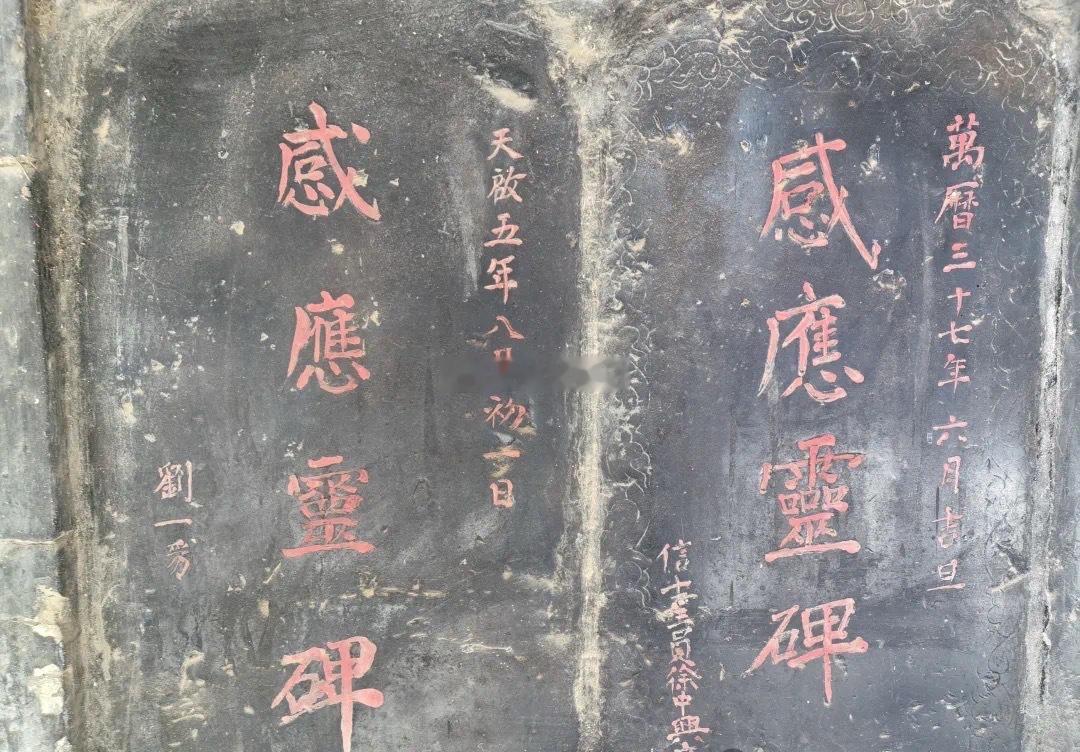 萬曆三十七年六月吉旦
感應靈碑
信士生員徐中興
天啟五年八月初二日
感應靈碑
劉一